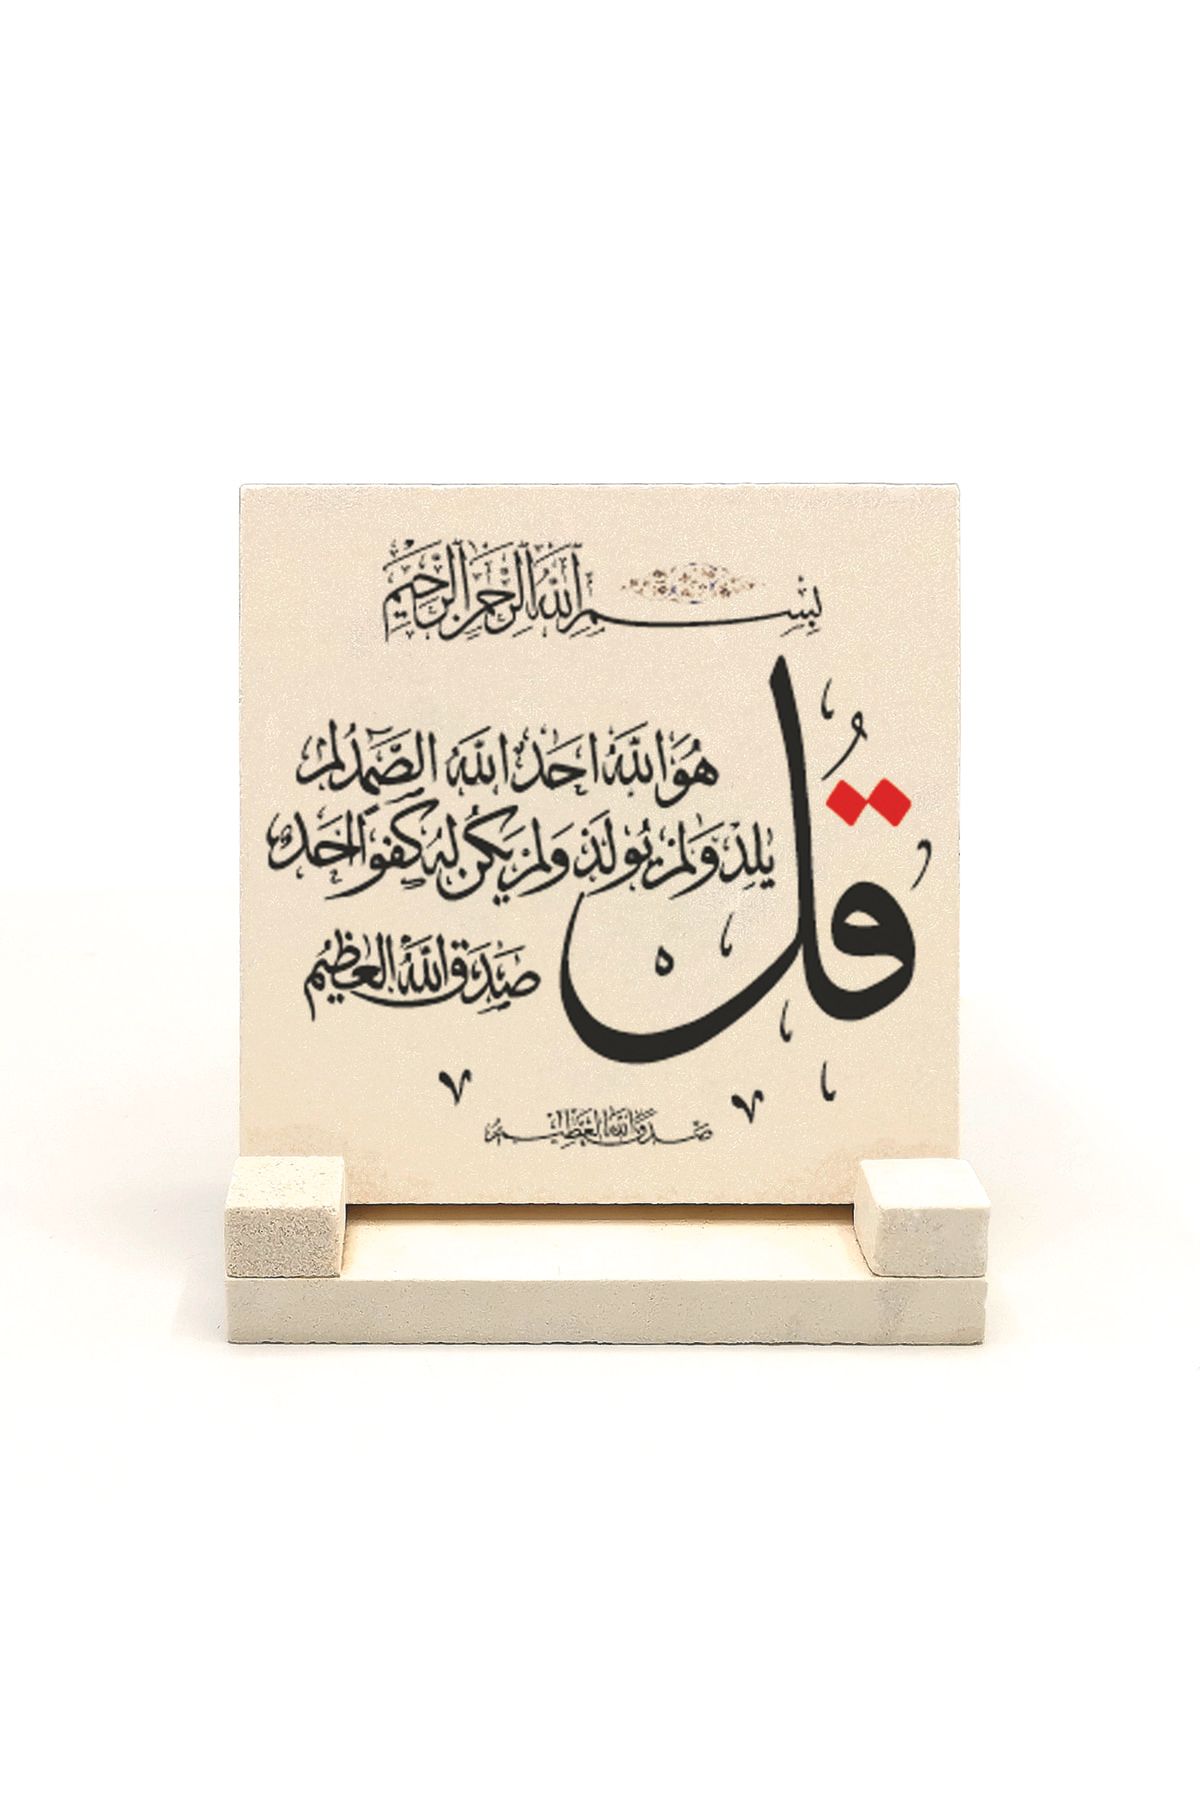 بِسْمِ اللهِ الرَّحْمٰنِ الرَّحِيمِ
قُلْ
هُوَ اللهُ اَحَدٌ اَللهُ الصَّمَدُ لَمْ
يَلِدْ وَلَمْ يُولَدْ وَلَمْ يَكُنْ لَهُ كُفُوًا اَحَدٌ
صَدَقَ اللهُ الْعَظِيمُ
صدق الله العظيم